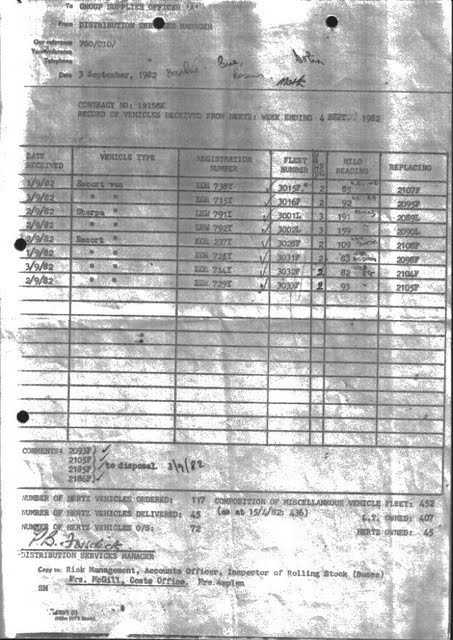 To GROUP SUPPLIES OFFICER 'A'
From DISTRIBUTION SERVICES MANAGER
Our reference 700/010/
Your reference
Telephone
Date 3 September, 1982
CONTRACT NO: 19156K
RECORD OF VEHICLES RECEIVED FROM HERTZ: WEEK ENDING 4 SEPT. 1982
DATE RECEIVED VEHICLE TYPE REGISTRATION NUMBER FLEET NUMBER MILO READING REPLACING
1/9/82 Escort van 738Y 3015F 2 85 2107F
3/9/82 " " 715Y 3016F 2 92 2095F
2/9/82 Sherpa " 791Y 3001L 3 191 2089L
2/9/82 " " 792Y 3002L 3 159 2090L
2/9/82 Escort " 737Y 3028F 2 109 2108F
1/9/82 " " 725Y 3031F 2 83 2098F
3/9/82 " " 714Y 3032F 2 82 2104F
2/9/82 " " 729Y 3033F 2 93 2105F
COMMENTS: 2093F) ✓
2105F) ✓
2185F) ✓ to disposal 3/9/82
2186F) ✓
NUMBER OF HERTZ VEHICLES ORDERED: 117 COMPOSITION OF MISCELLANEOUS VEHICLE FLEET: 452
NUMBER OF HERTZ VEHICLES DELIVERED: 45 (as at 15/4/82: 436) L.T. OWNED: 407
NUMBER OF HERTZ VEHICLES O/S: 72 HERTZ OWNED: 45
DISTRIBUTION SERVICES MANAGER
Copy to: Risk Management, Accounts Officer, Inspector of Rolling Stock (Buses)
Mrs. McGill, Costs Office. Mrs. Asplen
SH